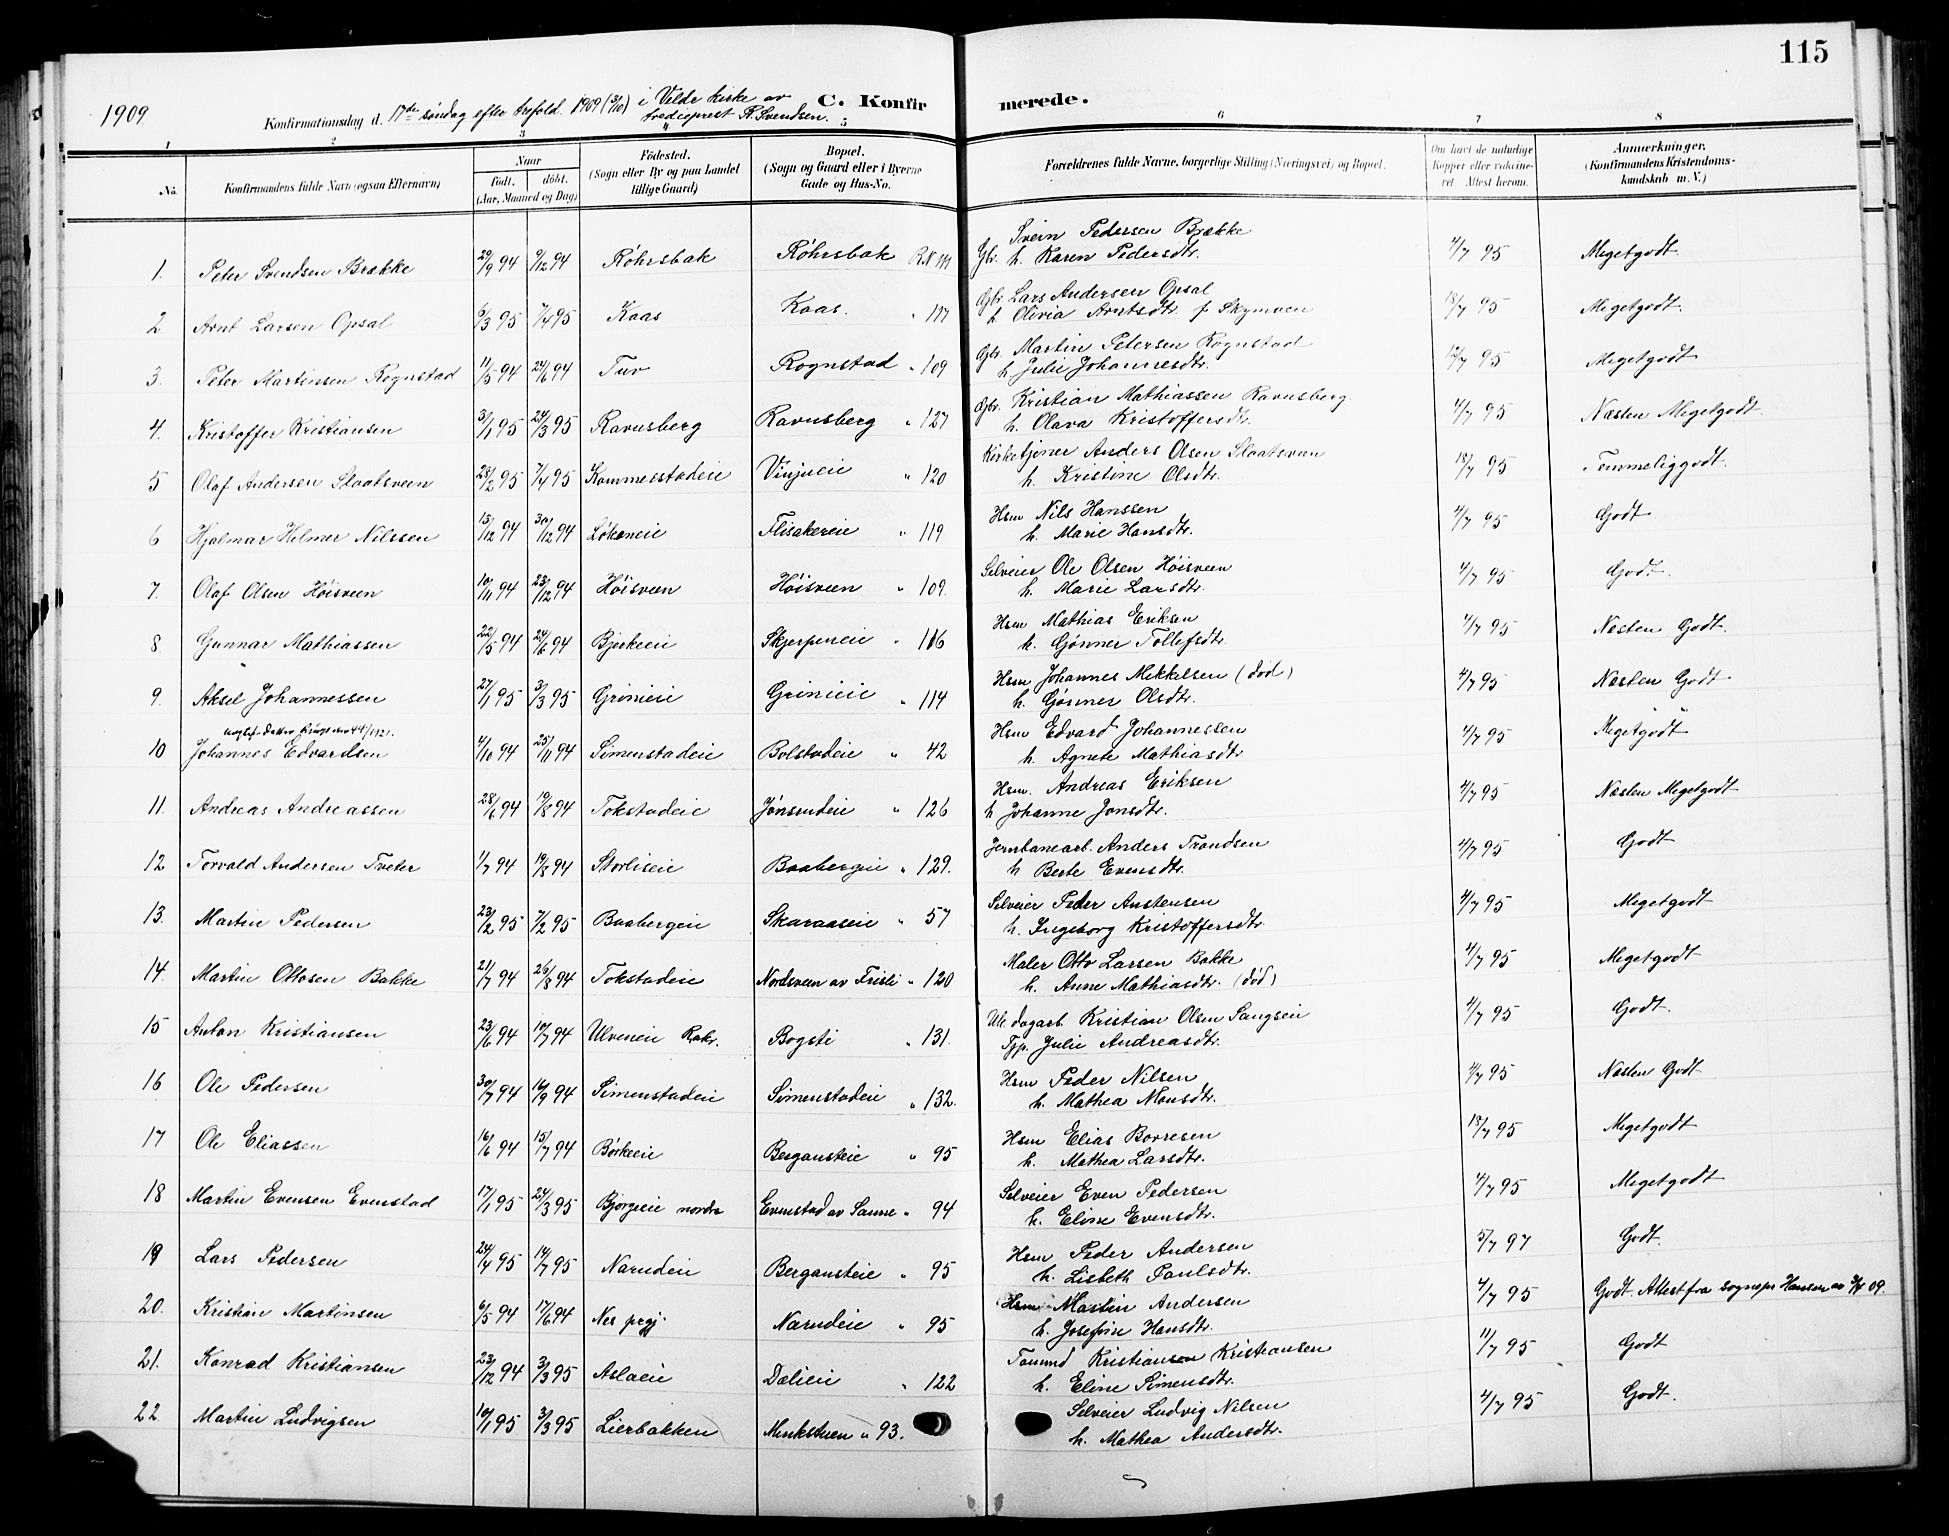 115
1909
Konfirmationsdag d. 17de søndag efter trefold. 1909 (3/10) i Veldre kirke av
tredieprest R. Svendsen.
C. Konfirmerede.
1 2 3 4 5 6 7 8
No. Konfirmandens fulde Navn (ogsaa Efternavn) Naar født. døbt. (Aar, Maaned og Dag) Fødested. (Sogn eller By og paa Landet tillige Gaard) Bopæl. (Sogn og Gaard eller i Byerne Gade og Hus-No. Forældrenes fulde Navne, borgerlige Stilling (Næringsvei) og Bopæl. Om havt de naturlige Kopper eller vaccineret. Attest herom. Anmerkninger. (Konfirmandens Kristendomskundskab m. V.)
1. Peter Svendsen Brække 29/9 94 9/12 94 Røhrsbak Røhrsbak R.N 111 Gbr. Svein Pedersen Brække h. Karen Pedersdtr. 4/7 95 Megetgodt.
2. Arnt Larsen Opsal 6/3 95 7/4 95 Kaas Kaas. " 117 Gbr. Lars Andersen Opsal h. Olivia Arntsdtr. f Skymoen 18/7 95 Megetgodt.
3. Peter Martinsen Rognstad 11/5 94 24/6 94 Tuv Rognstad " 109 Gbr. Martin Petersen Rognstad h. Julie Johannesdtr. 12/7 95 Megetgodt
4. Kristoffer Kristiansen 31/1 95 24/3 95 Ravnsberg Ravnsberg " 127 Gbr. Kristian Mathiassen Ravnsberg. h. Olava Kristoffersdtr. 4/7 95 Næsten Megetgodt.
5 Olaf Andersen Slaatsveen 28/2 95 7/4 95 Kommerstadeie Vinjueie " 120 Kirketjener Anders Olsen Slaatsveen h. Kristine Olsdtr. 18/7 95 Temmeliggodt.
6 Hjalmar Helmer Nilssen 13/12 94 30/12 94 Løkeneie Flisakereie " 119 Hsm Nils Hanssen h. Marie Hansdtr. 4/7 95 Godt
7. Olaf Olsen Høisveen 10/11 94 23/12 94 Høisveen Høisveen " 109. Selveier Ole Olsen Høisveen h. Marie Larsdtr. 4/7 95 Godt.
8 Gunnar Mathiassen 22/5 94 24/6 94 Bjerkeeie Skjerpeneie " 116 Hsm Mathias Eriksen h. Gønner Tollefsdtr. 4/7 95 Næsten Godt.
9. Aksel Johannessen 27/1 95 3/3 95 Grinieie Grinieie " 114 Hsm Johannes Mikkelsen (død) h. Gønner Olsdtr. 4/7 95 Næsten Godt
10 Johannes Edvardsen 4/10 94 25/11 94 Simenstadeie Bolstadeie " 42 Hsm Edvard Johannessen h. Agnete Mathiasdtr 4/7 95 Megetgodt
11. Andreas Andreassen 28/6 94 19/8 94 Tokstadeie Jønsrudeie " 126 Hsm. Andreas Eriksen h Johanne Jonsdtr. 4/7 95 Næsten Megetgodt
12 Torvald Andersen Tveter 1/7 94 19/8 94 Storliseie Baabergeie " 129. Jernbanearb. Anders Trondsen h Berte Evensdtr. 4/7 95 Godt
13. Martin Pedersen 23/2 95 7/2 95 Baabergeie Skaraaseie " 57 Selveier Peder Austensen h. Ingeborg Kristoffersdtr 4/7 95 Megetgodt
14. Martin Ottosen Bakke 21/7 94 26/8 94 Tokstadeie Nordsveen av Fristi " 120 Maler Otto Larsen Bakke h. Anne Mathiasdtr. (død) 4/7 95 Megetgodt
15 Anton Kristiansen 23/6 94 10/7 94 Ulveneie Raker. Bogsti " 131. Uk. dagarb. Kristian Olsen Sangseie Tjp. Julie Andreasdtr. 4/7 95 Godt.
16 Ole Pedersen 30/7 94 16/9 94 Simenstadeie Simenstadeie " 132. Hsm Peder Nilsen h. Mathea Monsdtr. 4/7 95 Næsten Godt
17 Ole Eliassen 16/6 94 15/7 94 Børkeeie Berganseie " 95 Hsm Elias Borresen h. Mathea Larsdtr. 18/7 95 Megetgodt
18 Martin Evensen Evenstad 17/1 95 24/3 95 Bjørgeeie nordre Evenstad av Sanne " 94 Selveier Even Pedersen h. Eline Evensdtr. 4/7 95 Megetgodt
19 Lars Pedersen 24/4 95 14/7 95 Narudeie Bergansteie " 95 Hsm Peder Andersen h. Lisbeth Paulsdtr. 5/7 97 Godt.
20. Kristian Martinsen 6/5 94 17/6 94 Nes prgj. Narudeie " 95 Hsm Martin Andersen h. Josefine Hansdtr. 4/7 95 Godt. Attest fra sognepr Hansen 09.
21. Konrad Kristiansen 23/12 94 3/3 95 Aslaeie Dælieie " 122 Kristiansen Kristiansen h. Eline Simensdtr. 11/7 95 Godt
22 Martin Ludvigsen 10/1 95 3/3 95 Lierbakken " 93. Selveier Ludvig Nilsen h. Mathea Andersdtr. 4/7 95 Godt.